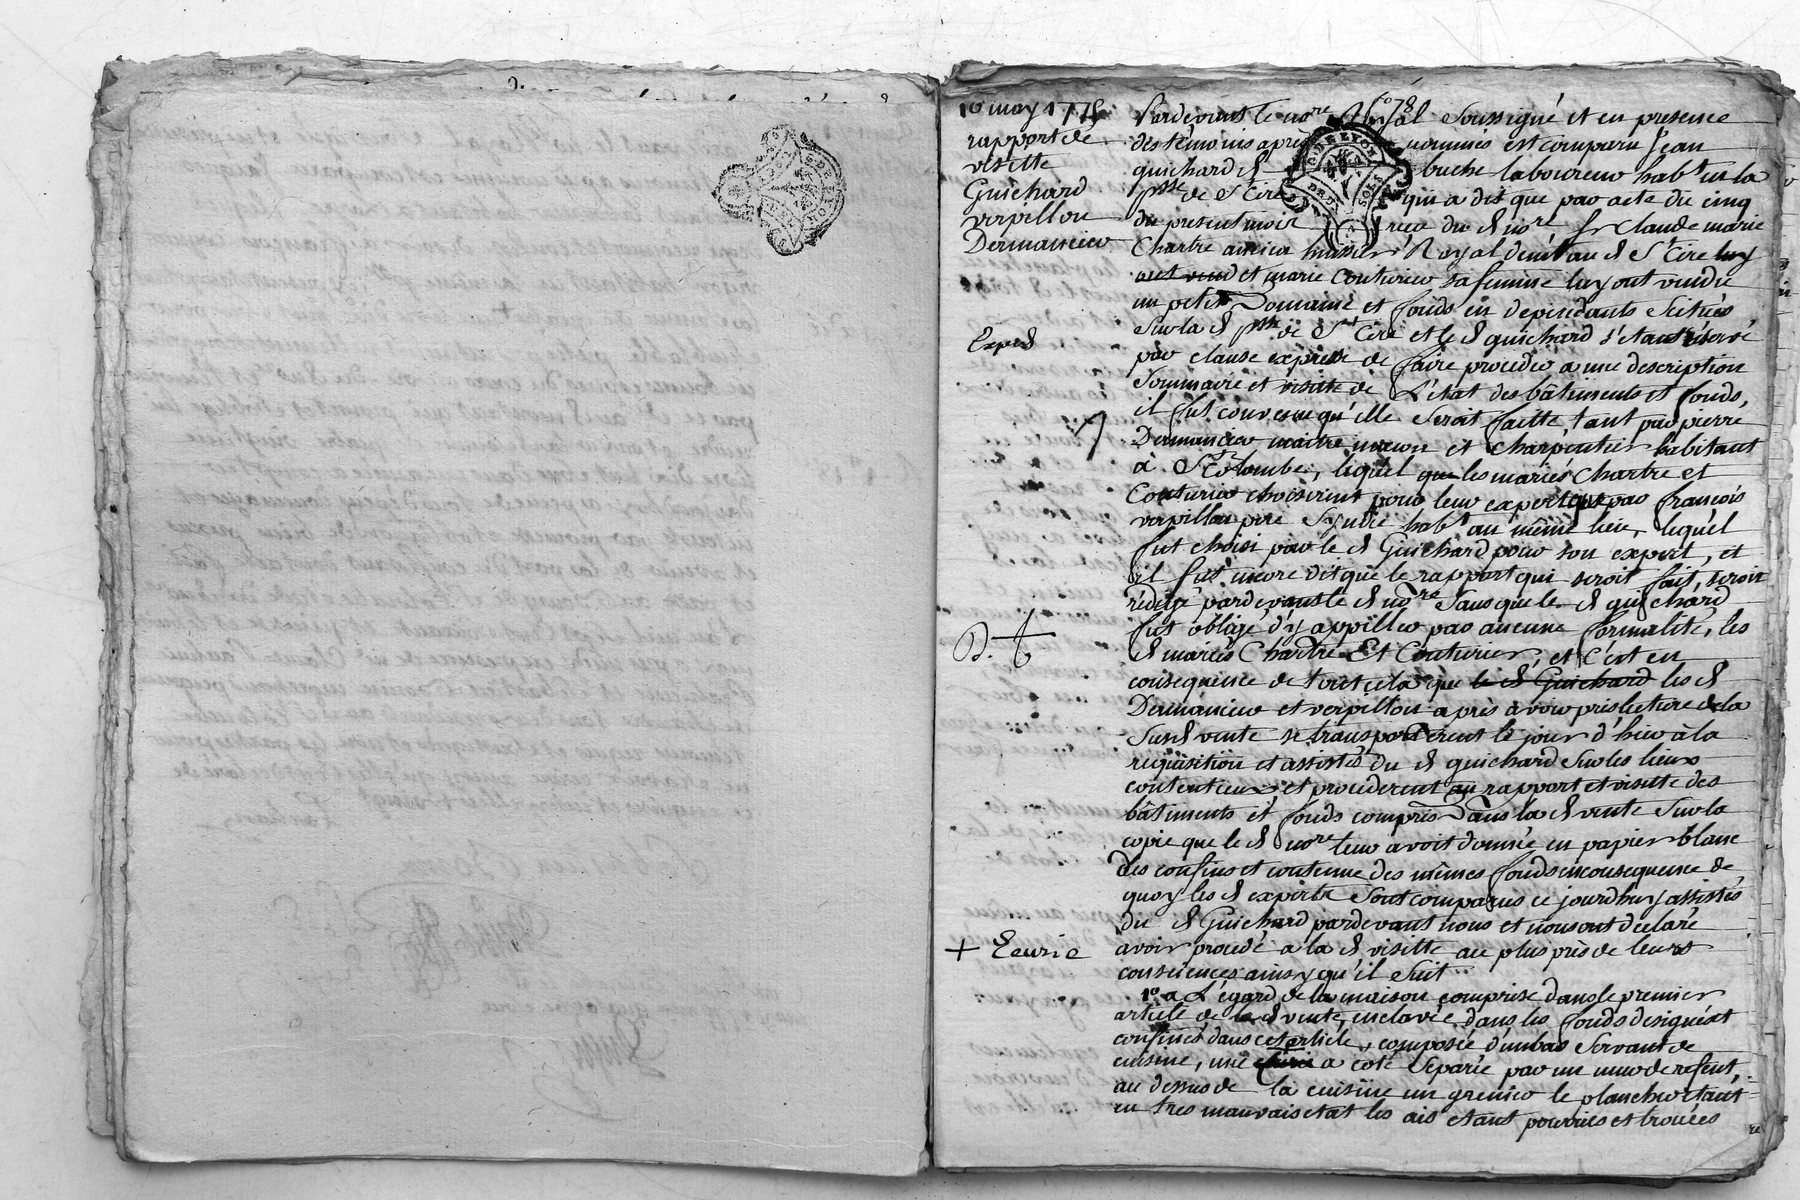 10 may 1778
rapport de
visitte
Guichard
verpillon
Dermancieu
Exped
D.
+ Ecurie
f° 78
GEN. DE LYON
DEUX SOLS
Pardevant le no.re Royal soussigné et en presence
des témoins après nommés est comparu Jean
guichard d buche laboureur hab.t en la
p.sse de S.t Cire qui a dit que par acte du cinq
du present mois reçu du d no.re s.r Claude marie
Chartre ancien huissier Royal dem.t au d S.t Cire
et marie Couturier sa femme luy ont vendu
un petit Domaine et fonds en dependants scitués
sur la d p.sse de S.t Cire et le d guichard s'étant réservé
par clause expresse de faire proceder a une description
sommaire et visitte de L'état des bâtiments et fonds,
il fut convenu qu'elle seroit faitte tant par pierre
Dermancieu maitre maçon et charpentier habitant
à S.te Colombe, lequel que les mariés Chartre et
Couturier choisirent pour leur expert que par françois
verpillon pere Syndic hab.t au même lieu, lequel
fut choisi par le d Guichard pour son expert, et
il fut encore dit que le rapport qui seroit fait, seroit
rédigé pardevant le d no.re sans que le d guichard
fut obligé d'y appeller par aucune formalité, les
d mariés Chartre Et Couturier, et C'est en
consequence de tout cela que le d Guichard les d
Dermancieu et verpillon après avoir pris lecture de la
susd vente se transporterent le jour d'hier à la
requisition et assistés du d guichard sur les lieux
contentieux et procederent au rapport et visitte des
bâtiments et fonds compris Dans la d vente sur la
copie que le d no.re leur avoit donnée en papier blanc
des confins et contenue des mêmes fonds en consequence de
quoy les d experts sont comparus ce jourd'huy assistés
du d Guichard pardevant nous et nous ont declaré
avoir procedé a la d visitte au plus près de leurs
consciences ainsy qu'il suit
1° a L'égard de la maison comprise dans le premier
article de la d vente, enclavée dans les fonds designés et
confinés dans cet article, composée d'un bas servant de
cuisine, une a coté separée par un mur de refent,
au dessus de la cuisine un grenier le plancher étant
en tres mauvais etat les ais etant pourries et trouées